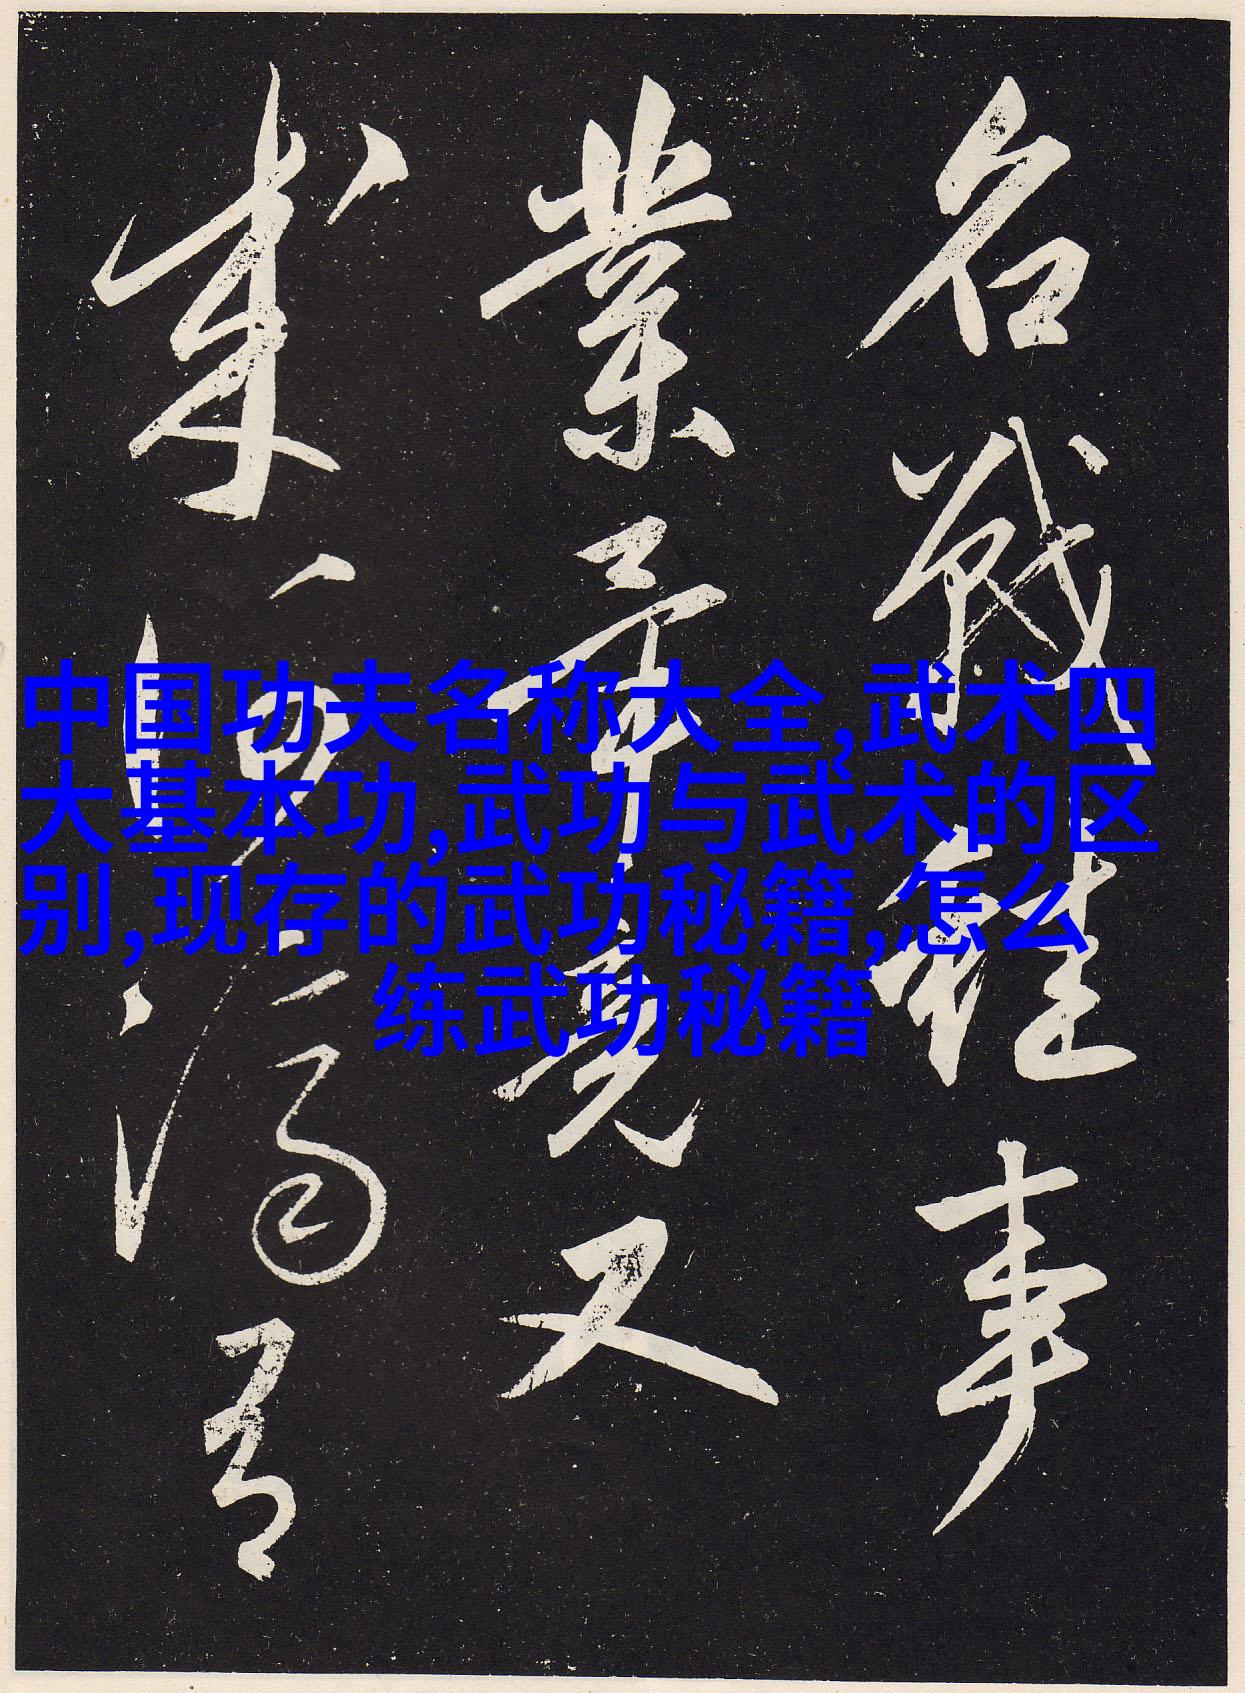 中国功夫名称大全,武术四
大基本功,武功与武术的区
别,现存的武功秘籍,怎么
练武功秘籍
名戰雖事
業竟又